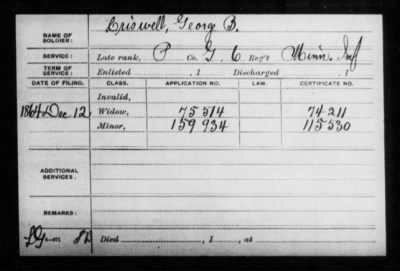 Criswell, Georg B.
NAME OF SOLDIER:
SERVICE: Late rank, P Co. G, 6 Reg't Minn. Inf
TERM OF SERVICE: Enlisted , 1 Discharged , 1
DATE OF FILING. CLASS. APPLICATION NO. LAW. CERTIFICATE NO.
Invalid,
1864 Dec 12 Widow, 75 514 74 211
Minor, 159 934 115 530
ADDITIONAL SERVICES:
REMARKS:
Died , 1 , at